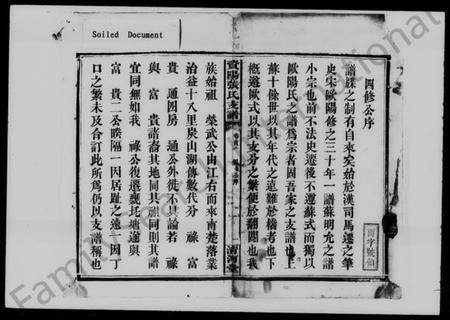 Soiled Document
四修公序
譜牒之制有自來矣始於漢司馬遷之筆
史宋歐陽修之三十年一譜蘇明允之譜
小宗也前不法史遷後不遵蘇式而獨以
歐陽氏之譜為宗者固吾家之支譜也上
蘇十餘世以其年代之遠難於稽考也下
概遵歐式以其支分之繁便於翻閱也我
張氏支譜
族始祖 榮武公由江右而來南楚落業
治益十八里炭山湖傳數代分 祿 富
貴 通四房 通公外徙不具論若 祿
與 富 貴諸裔其地同其親同則其譜
宜同無如我 祿公復遷甕圫塘邊與
富 貴二公睽隔一因居趾之遠一因丁
口之繁未及合訂此所為仍以支譜稱也
清河堂
FamilySearch International